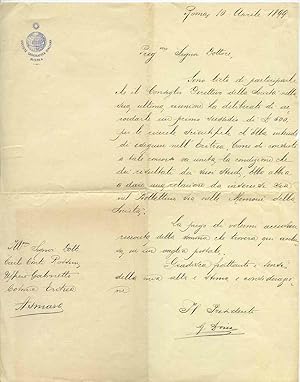 Roma, 14 Aprile 1899
Preg.mo Signor Dottore,
Sono lieto di parteciparle
che il Consiglio Direttivo della Società nella
sua ultima riunione ha deliberato di ac
cordarle un primo sussidio di L. 500,
per le ricerche scientifiche ch'Ella intende
di eseguire nell'Eritrea. Come di consueto
a tale concorso va unita la condizione che
dei resultati dei suoi studi, Ella abbia
a dare una relazione da inserirsi
nel Bollettino sia nelle Memorie della
Società.
La prego di volermi accusare
ricevuta della somma che troverà qui unita
in un vaglia postale.
Gradisca frattanto i sensi
della mia alta stima e considerazio
ne
Il Presidente
G. Doria
Ill.mo Signor Dott.
Colonia Eritrea
Asmara